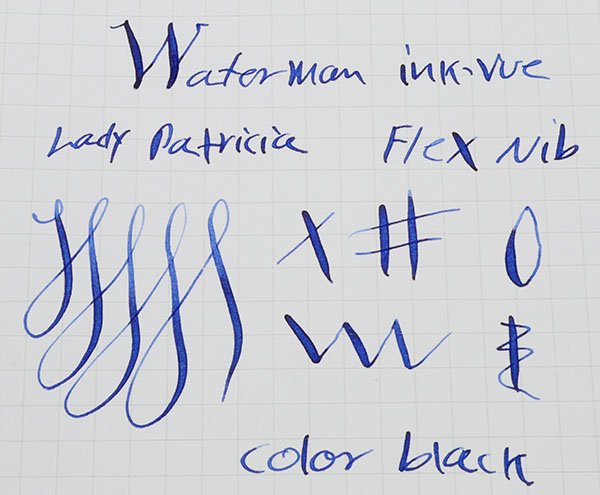 Waterman ink-vue
Lady Patricia Flex Nib
X # 0
color black